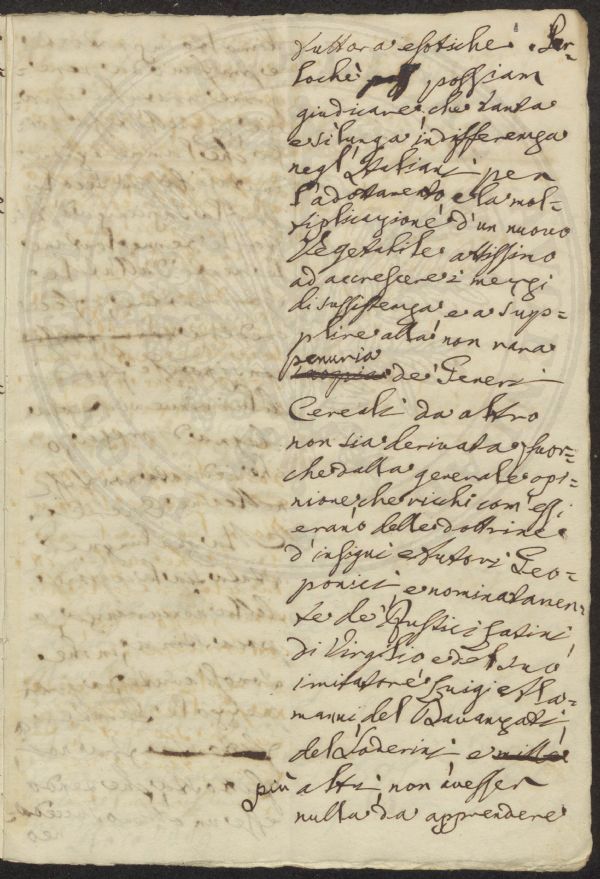 tuttora esotiche. Per-
lochè possiam
giudicare che tanta
e sì lunga indifferenza
negl'Italiani per
l'adottamento e la mol-
tiplicazione d'un nuovo
Vegetabile attissimo
ad accrescere i mezzi
di sussistenza e a sup-
plire alla non rara
penuria
de' Generi
Cereali da altro
non sia derivata fuor-
che dalla generale opi-
nione che ricchi com'essi
erano delle dottrine
d'insigni e Geo-
ponici e nominatamen-
te de' Rustici Latini
di Virgilio e del suo
imitatore Luigi Ala-
manni, del Davanzati
del Soderini e mille
più altri non avesser
nulla da apprendere